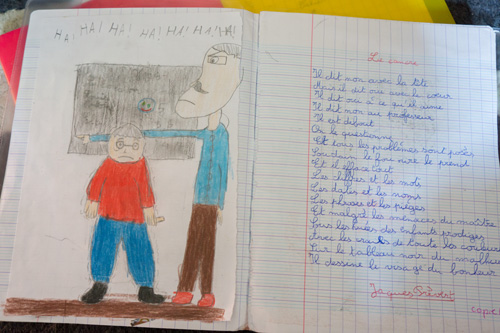 HA! HA! HA! HA! HA! HA! HA!
Le cancre
Il dit non avec la tête
Mais il dit oui avec le coeur
Il dit oui à ce qu'il aime
Il dit non au professeur
Il est debout
On le questionne
Et tous les problèmes sont posés
Soudain le fou rire le prend
Et il efface tout
Les chiffres et les mots
Les dates et les noms
Les phrases et les pièges
Et malgré les menaces du maître
Sous les huées des enfants prodiges
Avec les craies de toutes les couleurs
Sur le tableau noir du malheur
Il dessine le visage du bonheur
Jacques Prévert
copi